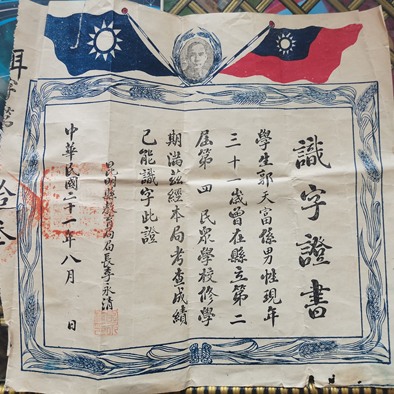 識字證書
學生郭天富係男性現年
三十一歲曾在縣立第二
屆第四民眾學校修學
期滿茲經本局考查成績
已能識字此證
昆明縣教育局局長李永清
中華民國二十一年八月 日